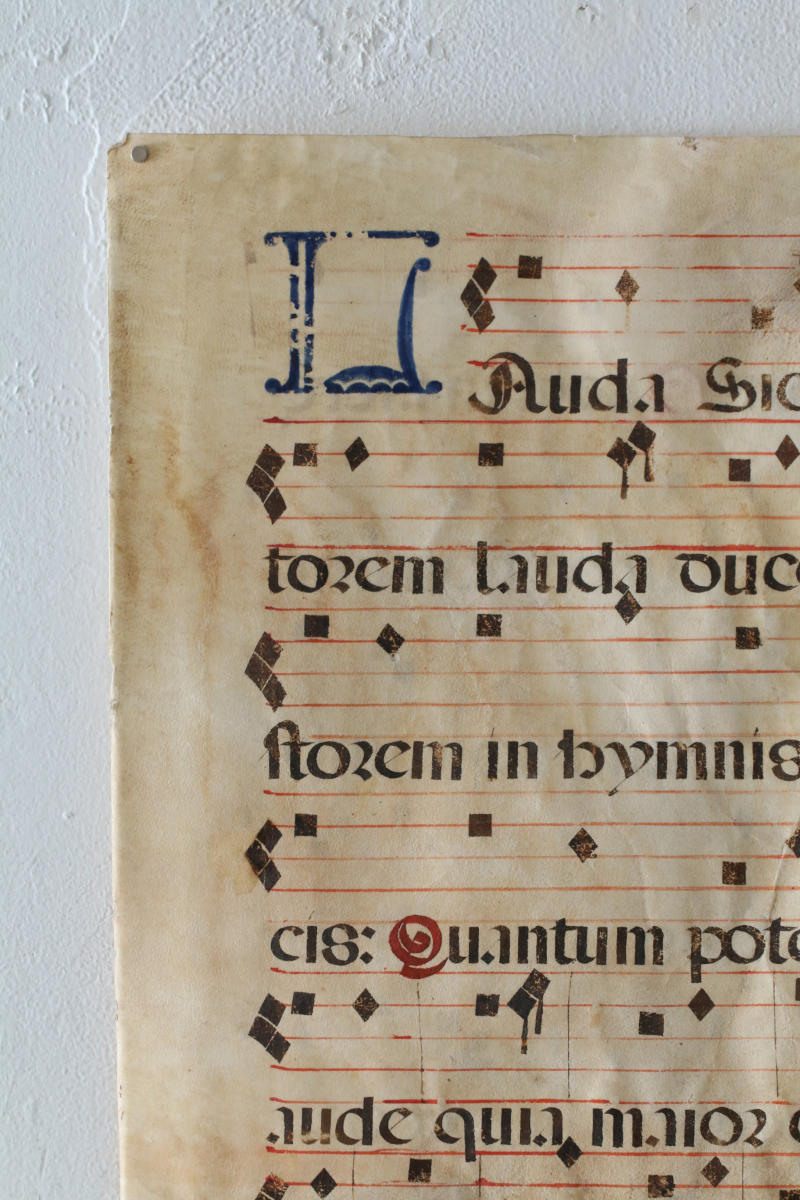 LAuda Sio
torem lauda duce
storem in hymnis
cis: Quantum pote
aude quia maior